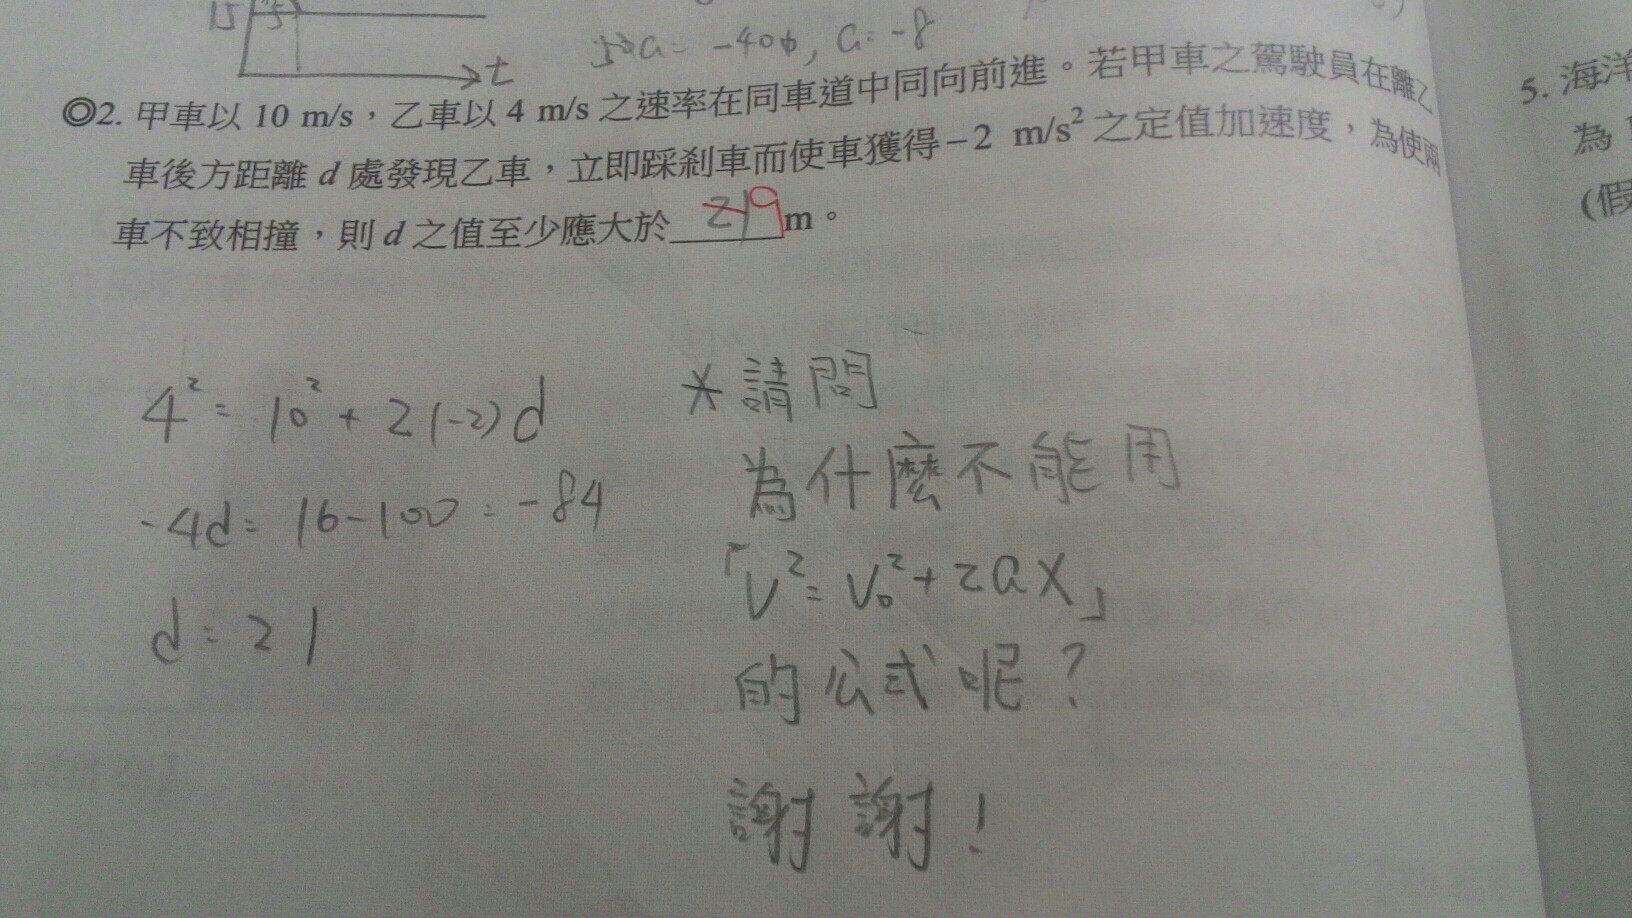 15
t
5²a = -40φ, a = -8
◎2. 甲車以 10 m/s，乙車以 4 m/s 之速率在同車道中同向前進。若甲車之駕駛員在離乙
車後方距離 d 處發現乙車，立即踩剎車而使車獲得 -2 m/s² 之定值加速度，為使兩
車不致相撞，則 d 之值至少應大於 21 9 m。
5. 海洋
為
(假
4² = 10² + 2(-2)d
-4d = 16-100 = -84
d = 21
*請問
為什麼不能用
「V² = V₀² + 2aX」
的公式呢？
謝謝！